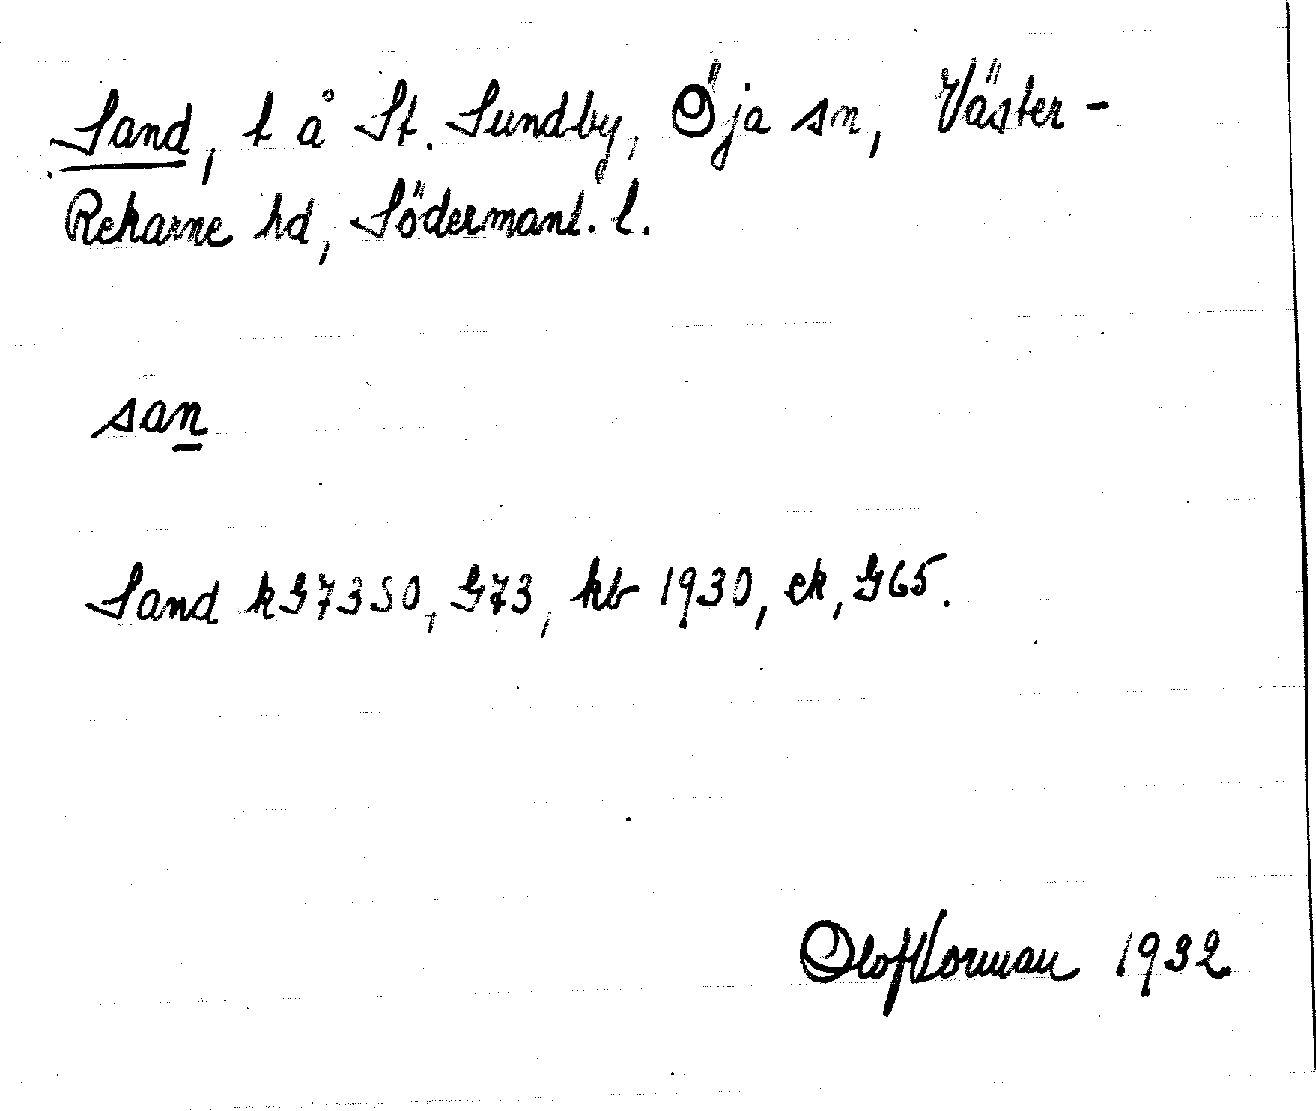 Sand, t å St. Sundby, Öja sn, Väster-
Rekarne hd, Södermanl. l.
san
Sand kG7350, G73, kb 1930, ek, G65.
Olof Norman 1932